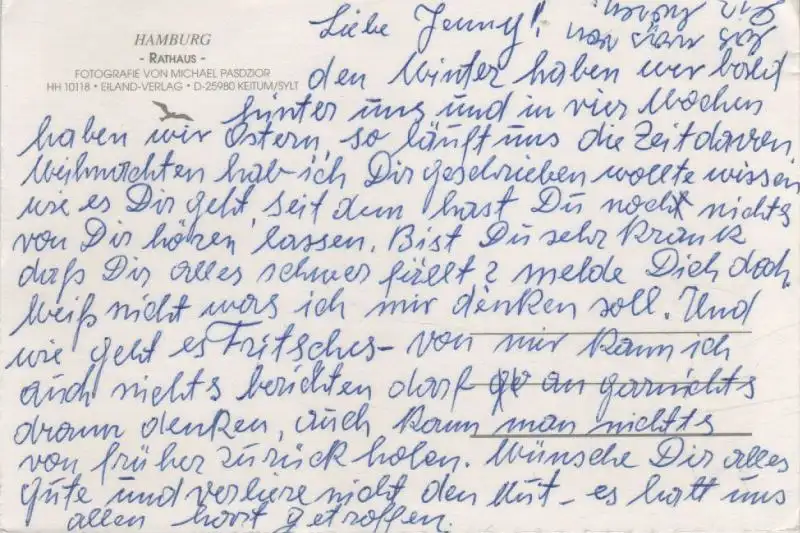 HAMBURG
- RATHAUS -
FOTOGRAFIE VON MICHAEL PASDZIOR
HH 10118 • EILAND-VERLAG • D-25980 KEITUM/SYLT
Liebe Jenny!
den Winter haben wir bald
hinter uns und in vier Wochen
haben wir Ostern, so läuft uns die Zeit davon.
Weihnachten hab ich Dir geschrieben wollte wissen
wie es Dir geht, seit dem hast Du noch nichts
von Dir hören lassen. Bist Du sehr krank
daß Dir alles schwer fällt? melde Dich doch.
Weiß nicht was ich mir denken soll. Und
wie geht es Fritsches - von mir kann ich
auch nichts berichten darf an garnichts
drann denken, auch kann man nichts
von früher zurück holen. Wünsche Dir alles
gute und verliere nicht den Mut - es hatt uns
allen hart getroffen.